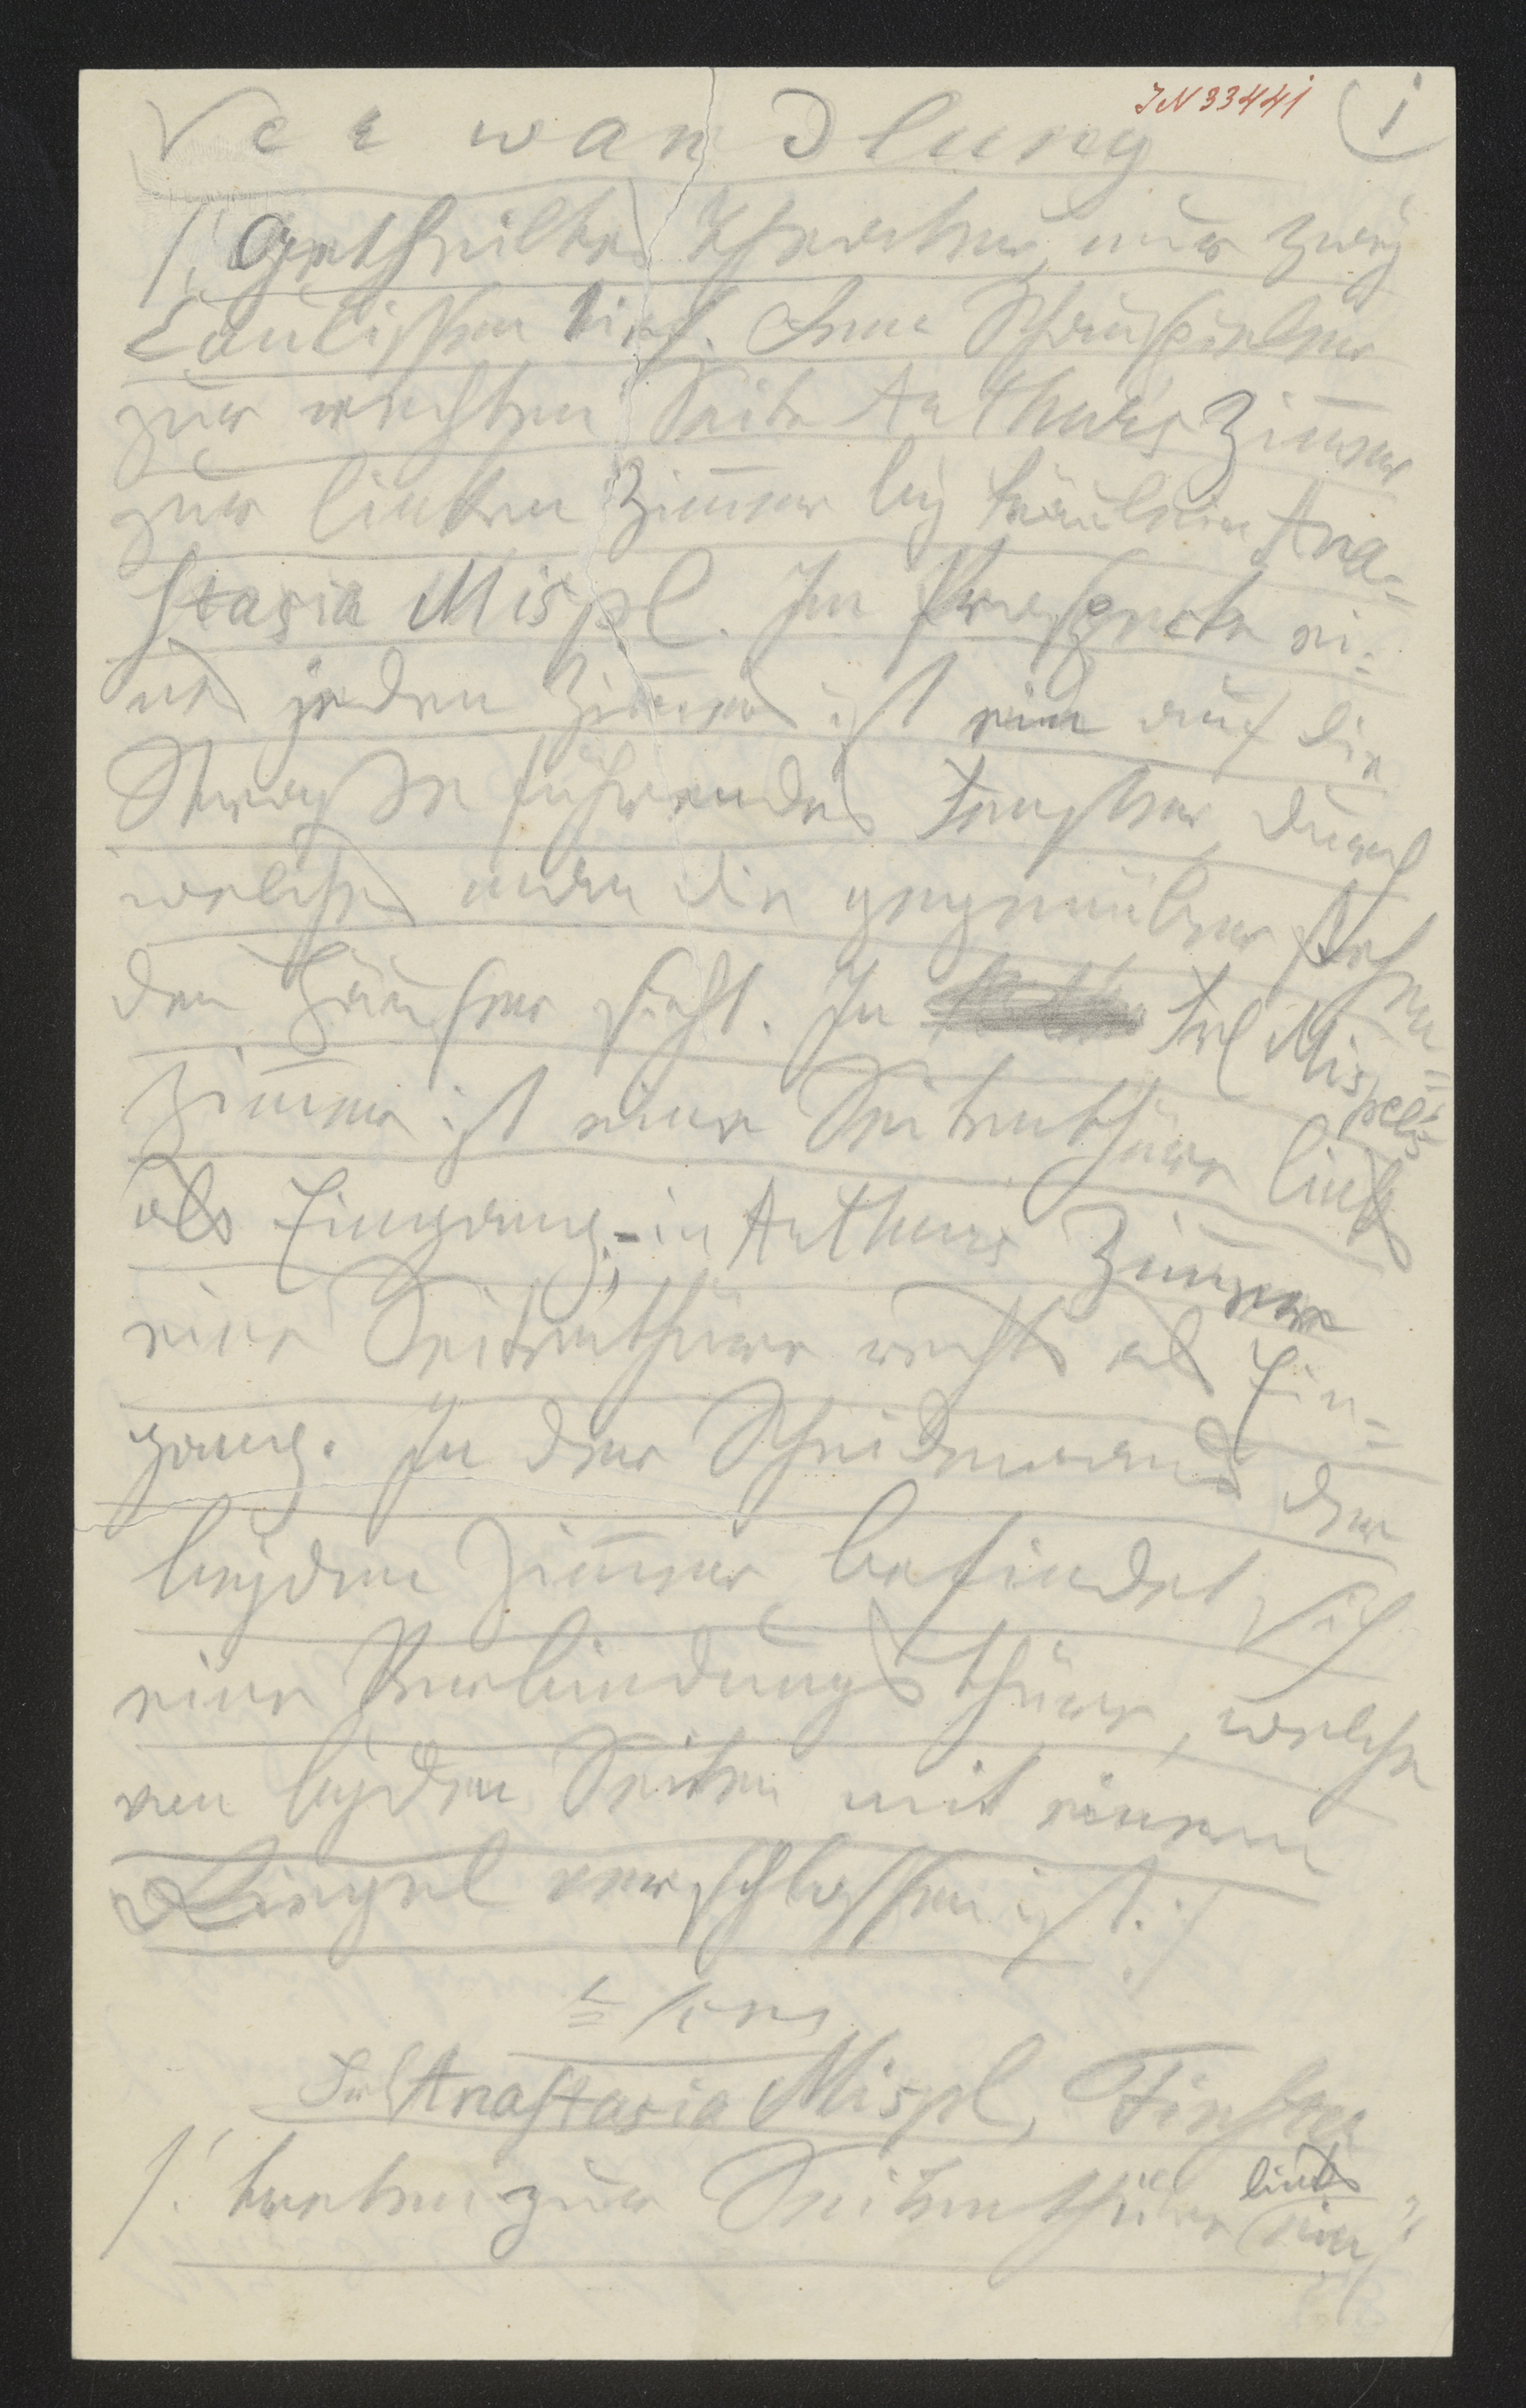 IN 33441
1
Verwandlung
/: Getheiltes Theater, nur zwey
Coulissen tief. Dem Schauspieler
zur rechten Seite Arthurs Zimmer
zur linken Zimmer bey Fräulein Ana=
stasia Mispl. Im Prospecte ei=
nes jeden Zimmers ist ein auf die
Strasse führendes Fenster, durch
welches man die gegenüber stehen=
den Häuser sieht. In Frl Mispels
Zimmer ist eine Seitenthüre links
als Eingang; – in Arthurs Zimmer
eine Seitenthüre rechts als Ein=
gang. In der Scheidewand der
beyden Zimmer befindet sich
eine Verbindungsthüre, welche
von beyden Seiten mit einem
Riegel verschlossen ist. :/
Scene
Frl Anastasia Mispl, Finster
/: treten zur Seitenthüre links ein :/